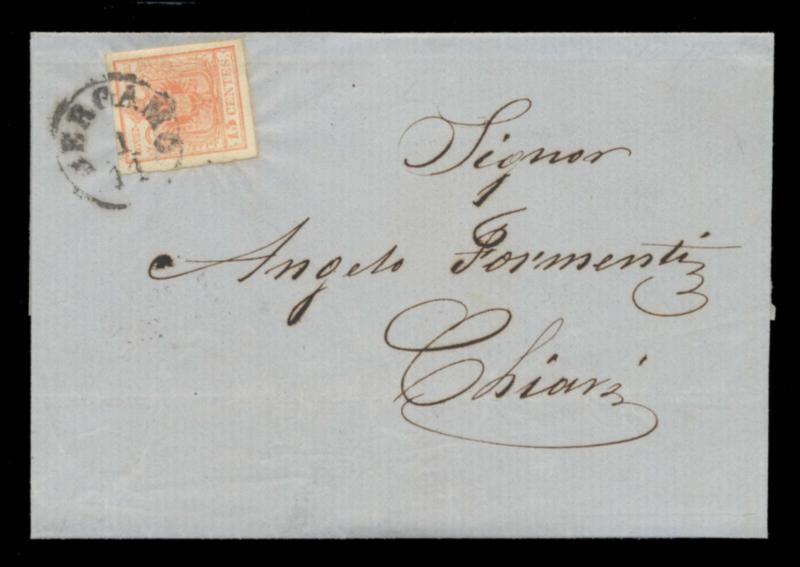 BERGAMO
15 CENTES.
Signor
Angelo Formenti
Chiari